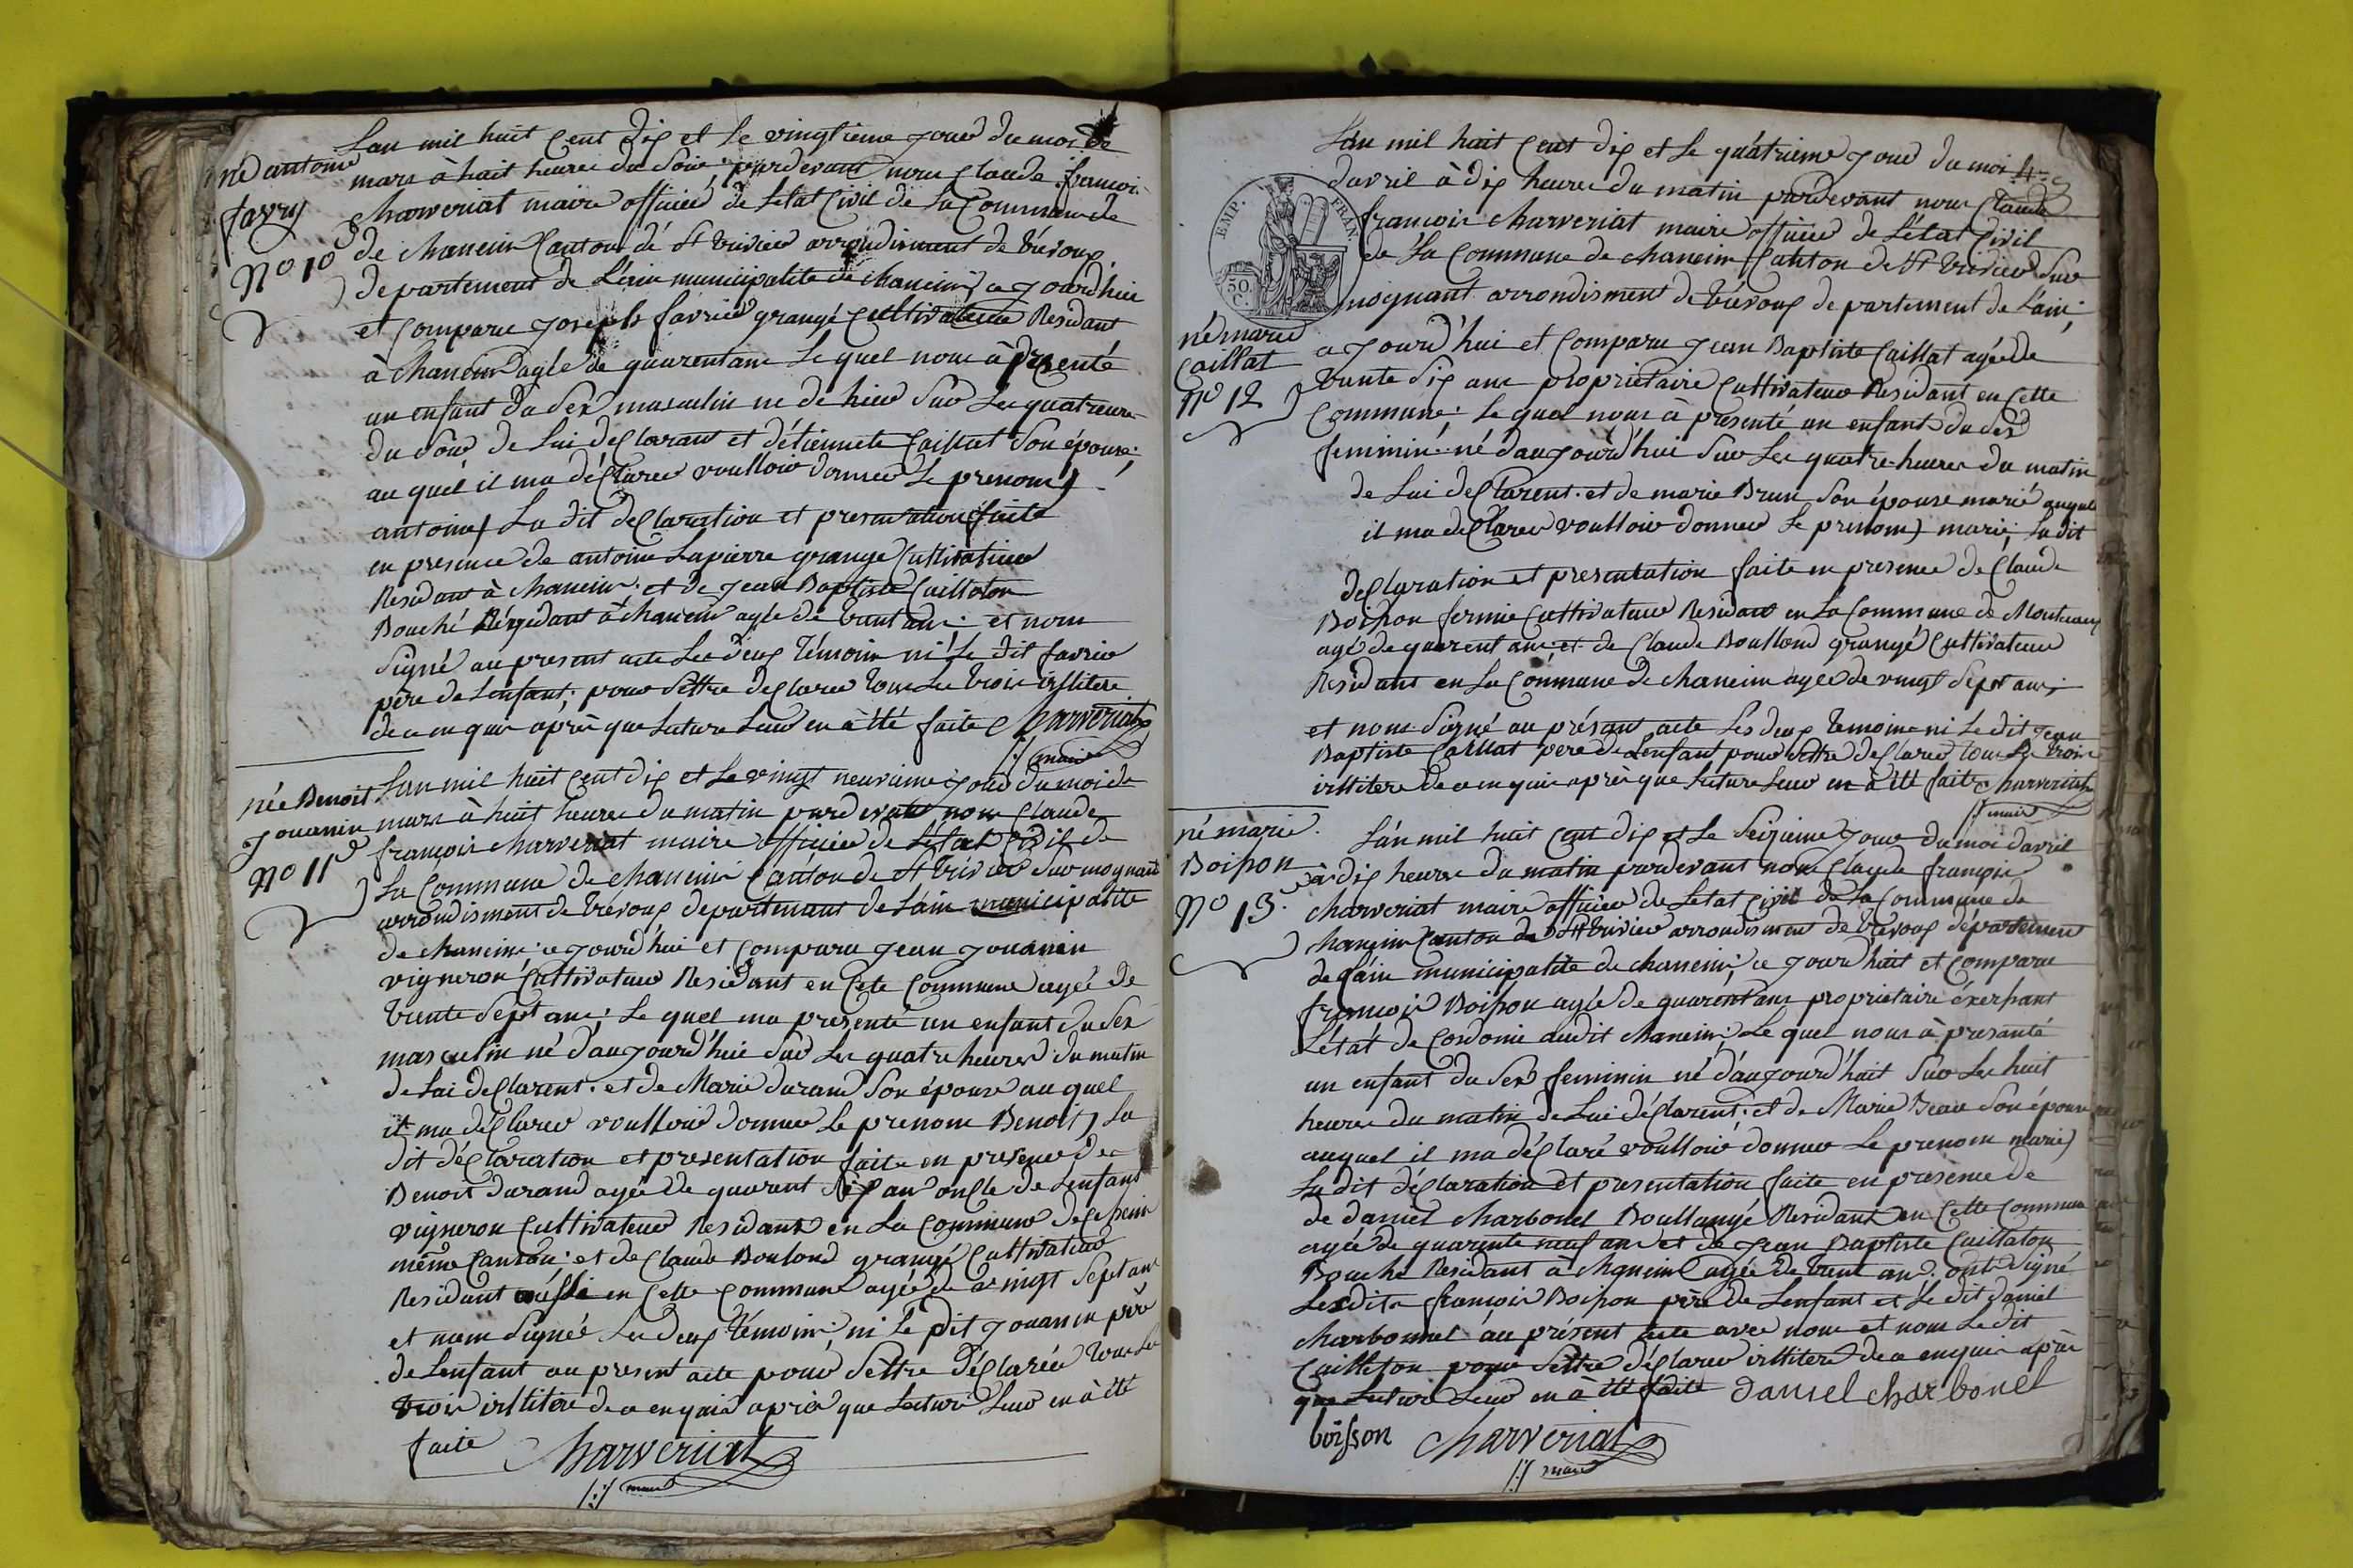 né antoine
favry
No 10
Lan mil huit Cent dix et le vingtieme jour du mois de
mars à huit heures du Soir, pardevant nous Claude francois
Charveriat maire officier de Letat Civil de La Commune de
de Chaneins Canton de St trivier arrondisment de trevoux
departement de L'ain municipalite de chaneins ce jourdhui
et Comparu joseph favrier grangé Cultivateur Residant
à Chaneins agée de quarentans Le quel nous à presenté
un enfant du Sex masculin né de hier Sur Les quatreure
du Soir de Lui declarant et détiennete Caillat Son épouse;
au quel il ma déClarer voulloir donner Le prenom)
antoine) La dit deClaration et presentation faite
en presence de antoine Lapierre grangé Cultivateur
Residant à chaneins; et de jean Baptiste Cailloton
Bouché Résidant à chanein agée de trent ans; et nons
Signé au present acte Les deux témoins ni Le dit favrier
père de Lenfant; pour Settre deClarer tous Les trois illitere
de ce enquis après que Lature Leur en à été faite Charveriat
maire
née Benoit
jouanin
No 11
Lan mil huit Cent dix et Le vingt neuvieme jour du moi de
mars à huit heures du matin pardevant nous Claude
francois Charveriat maire officier de Létat Civil de
La Commune de chaneins Canton de St trivier Sur mognant
arrondisment de trevoux departement de L'ain municipalité
de chaneins; ce jourd'hui et Comparu jean jouanin
vigneron Cultivateur Residant en Cete Commune agée de
trente Sept ans; Le quel ma presenté un enfant du Sex
masculin né d'aujourd'hui Sur Les quatre heures du matin
de Lui deClarent. et de Marie durand Son épouse au quel
il ma deClarer voulloir donner Le prenom Benoit) La
dit déClaration et presentation faite en presence de
Benoit durand agée de quarent Six ans onCle de Lenfant
vigneron Cultivateur Residant en La Commune de
même Canton; et de Claude Boulond grangé Cultivateur
Residant aussi en Cette Commune agée de vingt Sept ans
et nons Signée Les deux témoins ni Le dit jouanin père
de Lenfant au present acte pour Settre déClarée tous Les
trois illitere de ce enquis après que Lecture Leur en à été
faite Charveriat
maire
EMP. FRAN.
50 C.
né marie
Caillat
No 12
Lan mil huit Cent dix et Le quátrieme jour du moi
davril à dix heures du matin pardevant nous Claude
francois Charveriat maire officier de L'état Civil
de La Commune de chaneins Canton de St trivier Sur
mognant arrondisment de trévoux departement de L'ain;
ce jourd'hui et Comparu jean Baptiste Caillat agée de
trente Six ans propriétaire Cultivateur Residant en Cette
Commune; Le quel nous à présenté un enfant du Sex
feminin né d'aujourd'hui Sur Les quatre heures du matin
de Lui deClarent. et de marie Brun Son épouse marié auquel
il ma deClarer voulloir donner Le prenom) marie; La dit
deClaration et presentation faite en presence de Claude
Boisson fermie Cultivateur Residant en La Commune de
agé de quarent ans et de Claude Boullond grangé Cultivateur
Residant en La Commune de chaneins agée de vingt Sept ans;
et nons Signé au présent acte Les deux temoins ni Le dit jean
Baptiste Caillat pere de Lenfant pour Settre deClarer tous Les trois
illitere de ce enquis après que Lecture Leur en à été faite Charveriat
maire
né marie
Boisson
No 13
Lan mil huit Cent dix et Le Seizieme jour du moi davril
à dix heures du matin pardevant nous Claude francois
Charveriat maire officier de Letat Civil de La Commune de
Chaneins Canton de St trivier arrondisment de trevoux département
de L'ain municipalité de chaneins; ce jourd'huit et Comparu
francois Boisson agée de quarent ans propriétaire éxersant
L'état de Cordonie audit chaneins; Le quel nous à presanté
un enfant du Sex feminin né d'aujourd'huit Sur Les huit
heures du matin de Lui déClarent; et de Marie Beau Son épouse
auquel il ma déClaré voulloir donner Le prenom marie)
La dit déClaration et presentation faite en presence de
de daniel Charbonel Boullangé Residant en Cette Commune
agée de quarente neuf ans et de jean Baptiste Cailloton
Bouché Residant à Chaneins agée de trent ans; ont Signé
Lesdits francois Boisson père de Lenfant et Le dit daniel
Charbonnel au présent acte avec nous et nons Le dit
Cailloton pour Settre déClarer illitere de ce enquis après
que Lecture Leur en à été faite daniel charbonel
boisson Charveriat
maire